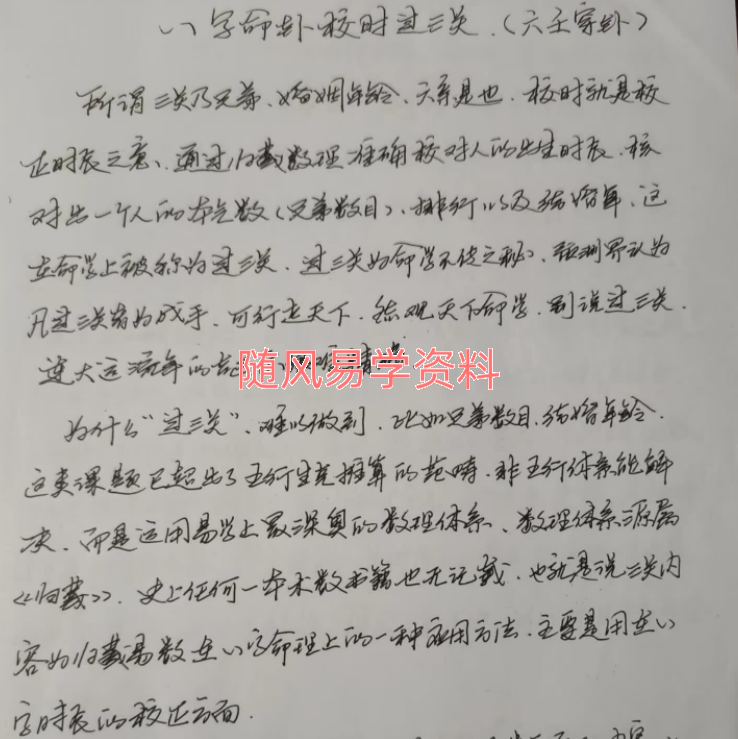 八字命卦校时过三关.（六壬穿卦）
所谓三关乃兄弟、婚姻年龄、六亲是也. 校时就是校
正时辰之意、通过归藏数理准确校对人的出生时辰. 核
对出一个人的本气数（兄弟数目）、排行以及结婚年. 这
在命学上被称为过三关. 过三关为命学不传之秘、预测界认为
凡过三关者为成手. 可行走天下. 纵观天下命学. 别说过三关.
连大运流年的
随风易学资料
为什么“过三关”、难以做到. 比如兄弟数目、结婚年龄.
这类课题已超出了五行生克推算的范畴. 非五行体系能解
决. 而是运用易学上最深奥的数理体系、数理体系源属
《归藏》. 史上任何一本术数书籍也无记载. 也就是说三关内
容为归藏易数在八字命理上的一种应用方法. 主要是用在八
字时辰的校正方面.